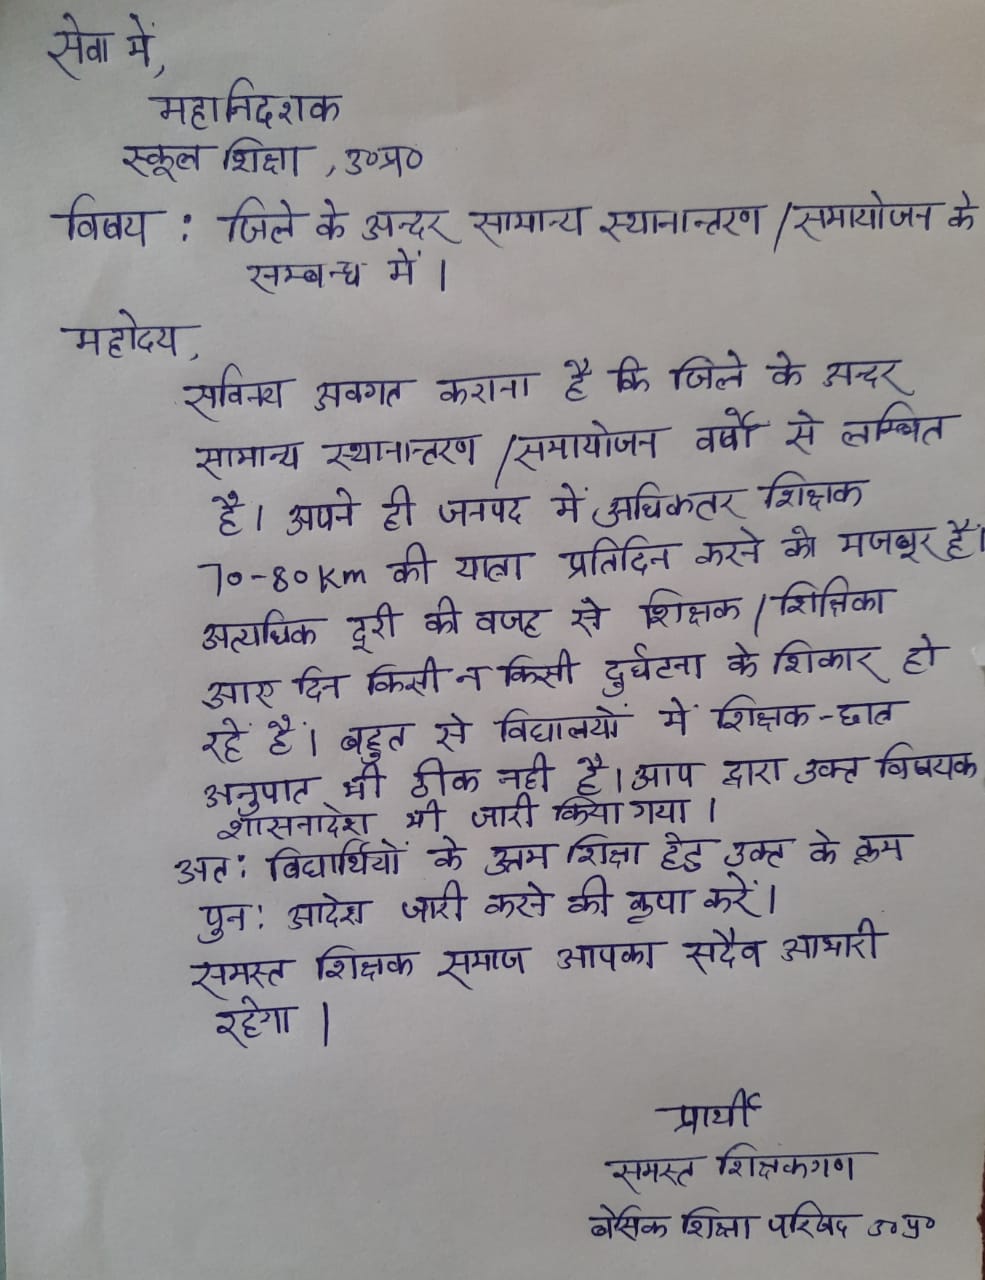 सेवा में,
महानिदशक
स्कूल शिक्षा, उ०प्र०
विषय : जिले के अन्दर सामान्य स्थानान्तरण /समायोजन के
सम्बन्ध में।
महोदय,
सविनय अवगत कराना है कि जिले के अन्दर
सामान्य स्थानान्तरण /समायोजन वर्षों से लम्बित
है। अपने ही जनपद में अधिकतर शिक्षक
70-80 km की यात्रा प्रतिदिन करने को मजबूर है।
अत्यधिक दूरी की वजह से शिक्षक / शिक्षिका
आए दिन किसी न किसी दुर्घटना के शिकार हो
रहें हैं। बहुत से विद्यालयों में शिक्षक-छात्र
अनुपात भी ठीक नही है। आप द्वारा उक्त विषयक
शासनादेश भी जारी किया गया।
अत: विद्यार्थियों के शिक्षा हेतु उक्त के क्रम
पुन: आदेश जारी करने की कृपा करें।
समस्त शिक्षक समाज आपका सदैव आभारी
रहेगा |
प्रार्थी
समस्त शिक्षकगण
बेसिक शिक्षा परिषद उ०प्र०